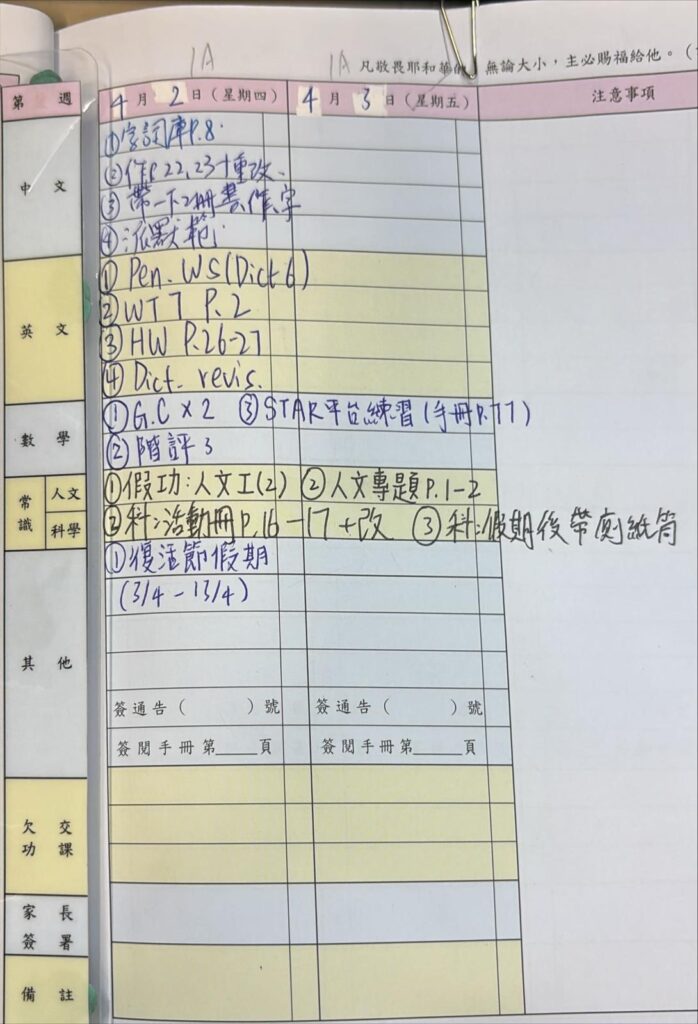 1A 1A 凡敬畏耶和華的,無論大小,主必賜福給他。(
第 週 4月2日(星期四) 4月3日(星期五) 注意事項
中文
①字詞庫P.8.
②作P.22,23+重改.
③帶一下2冊書作字
④派默範.
英文
① Pen. WS(Dict 6)
② WT 7 P.2
③ HW P.26-27
④ Dict. revis.
數學
① G.C x 2 ③ STAR平台練習(手冊P.77)
② 階評3
常識 人文 科學
①假功:人文工(2) ②人文專題P.1-2
②科:活動冊P.16-17+改 ③科:假期後帶廁紙筒
其他
①復活節假期
(3/4-13/4)
簽通告( )號 簽通告( )號
簽閱手冊第____頁 簽閱手冊第____頁
欠交功課
家長簽署
備註